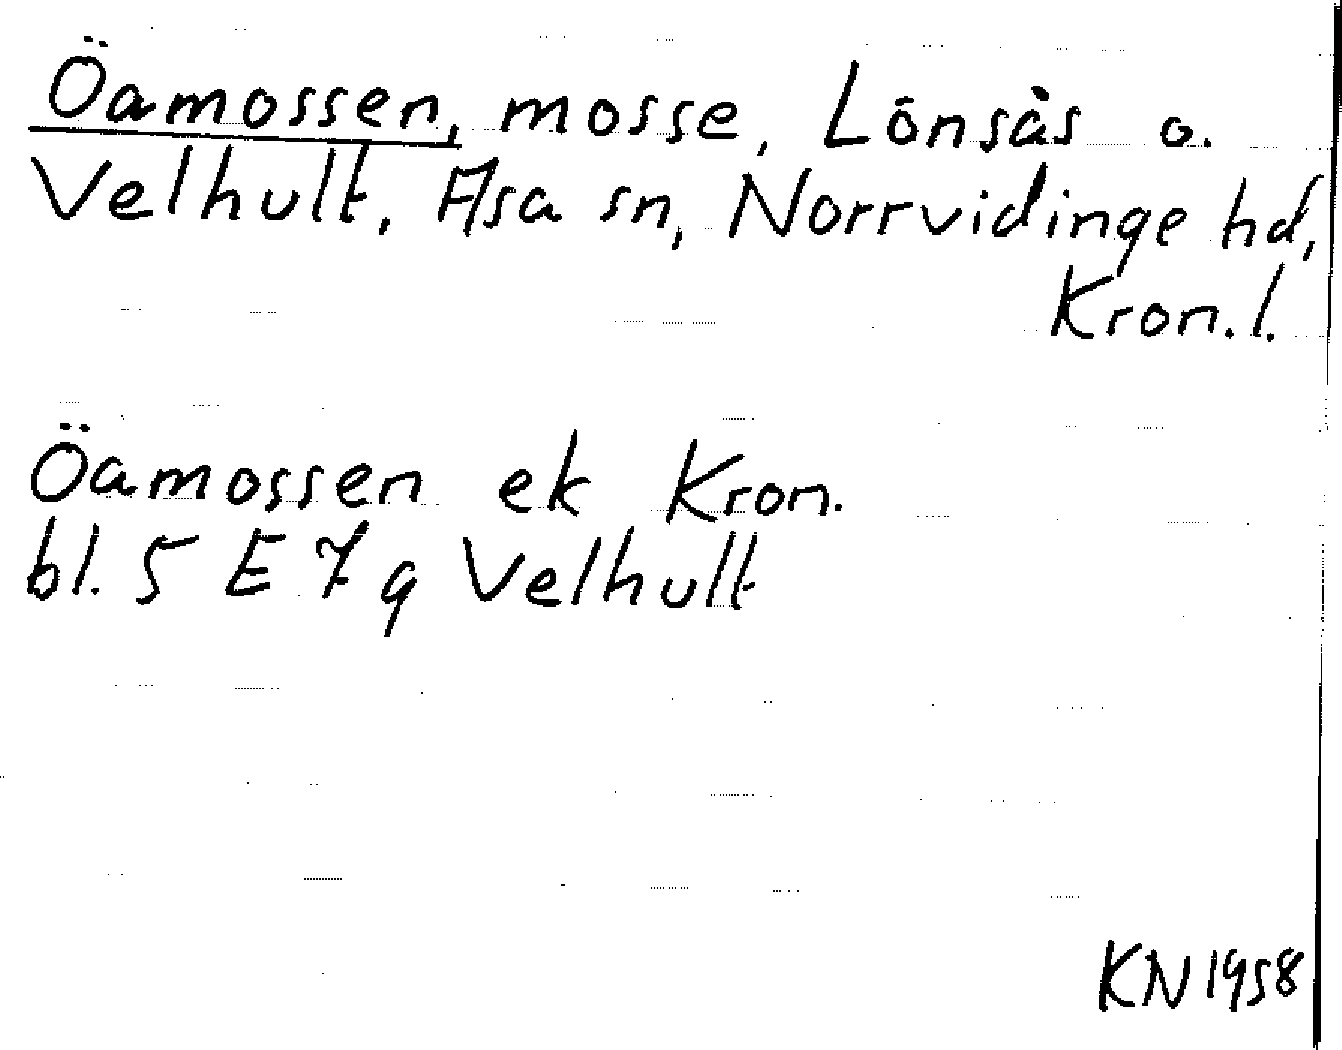 Öamossen, mosse, Lönsås o.
Velhult, Asa sn, Norrvidinge hd,
Kron. l.
Öamossen ek Kron.
bl. 5 E 7 g Velhult
KN 1958